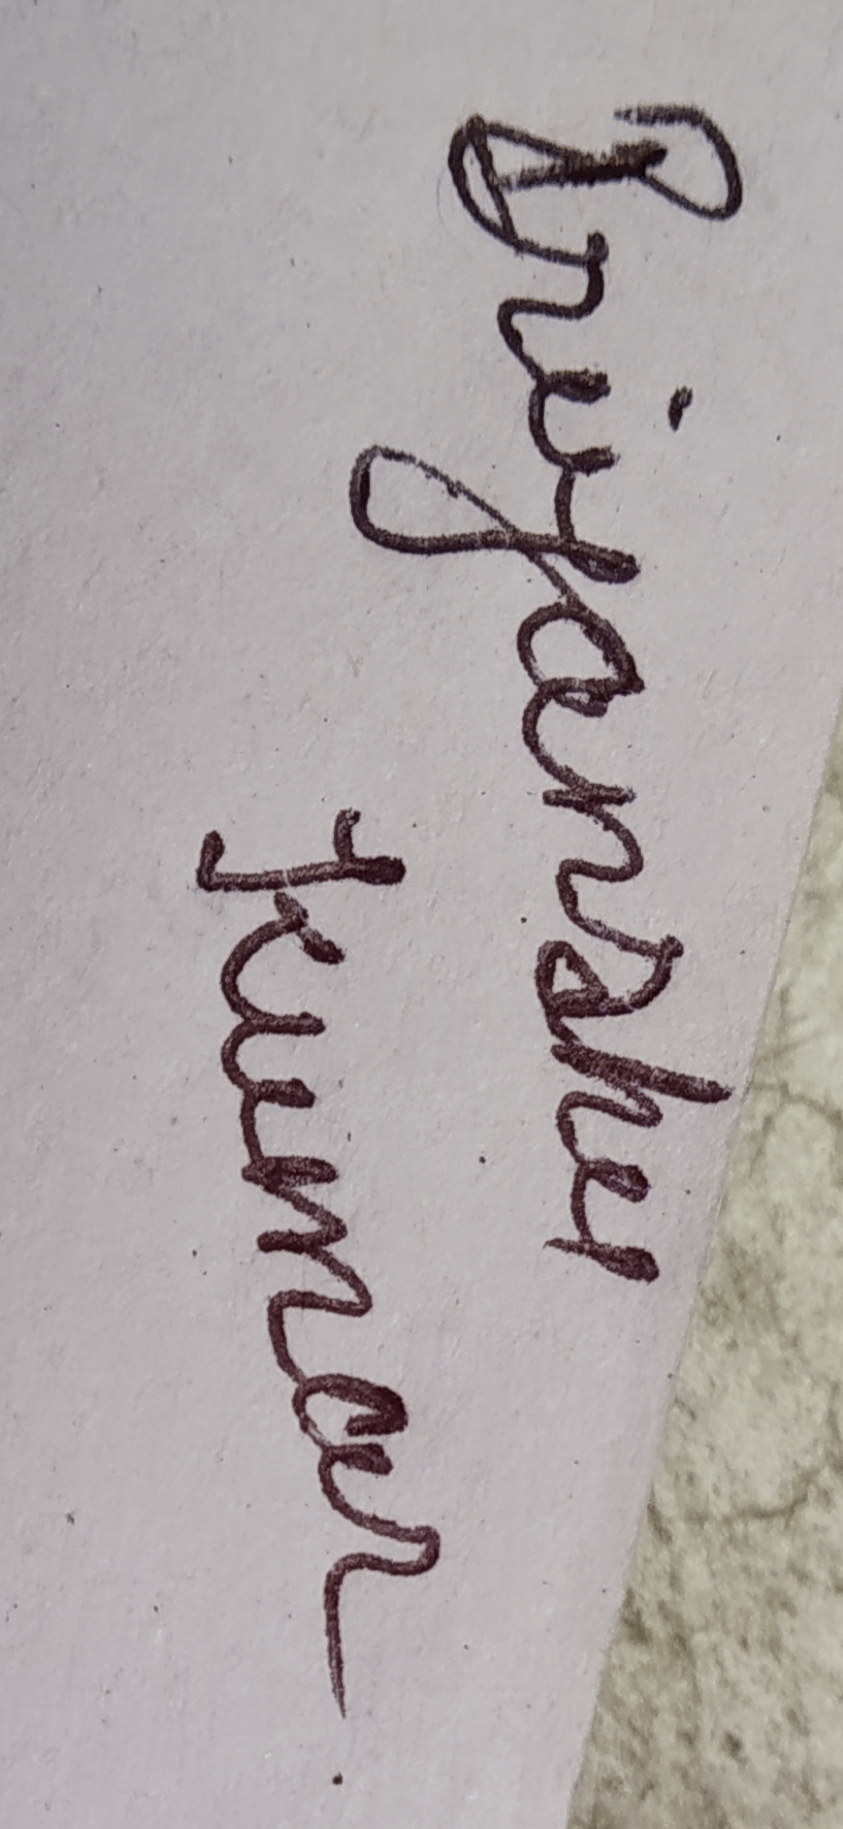 Priyanshu
Kumar